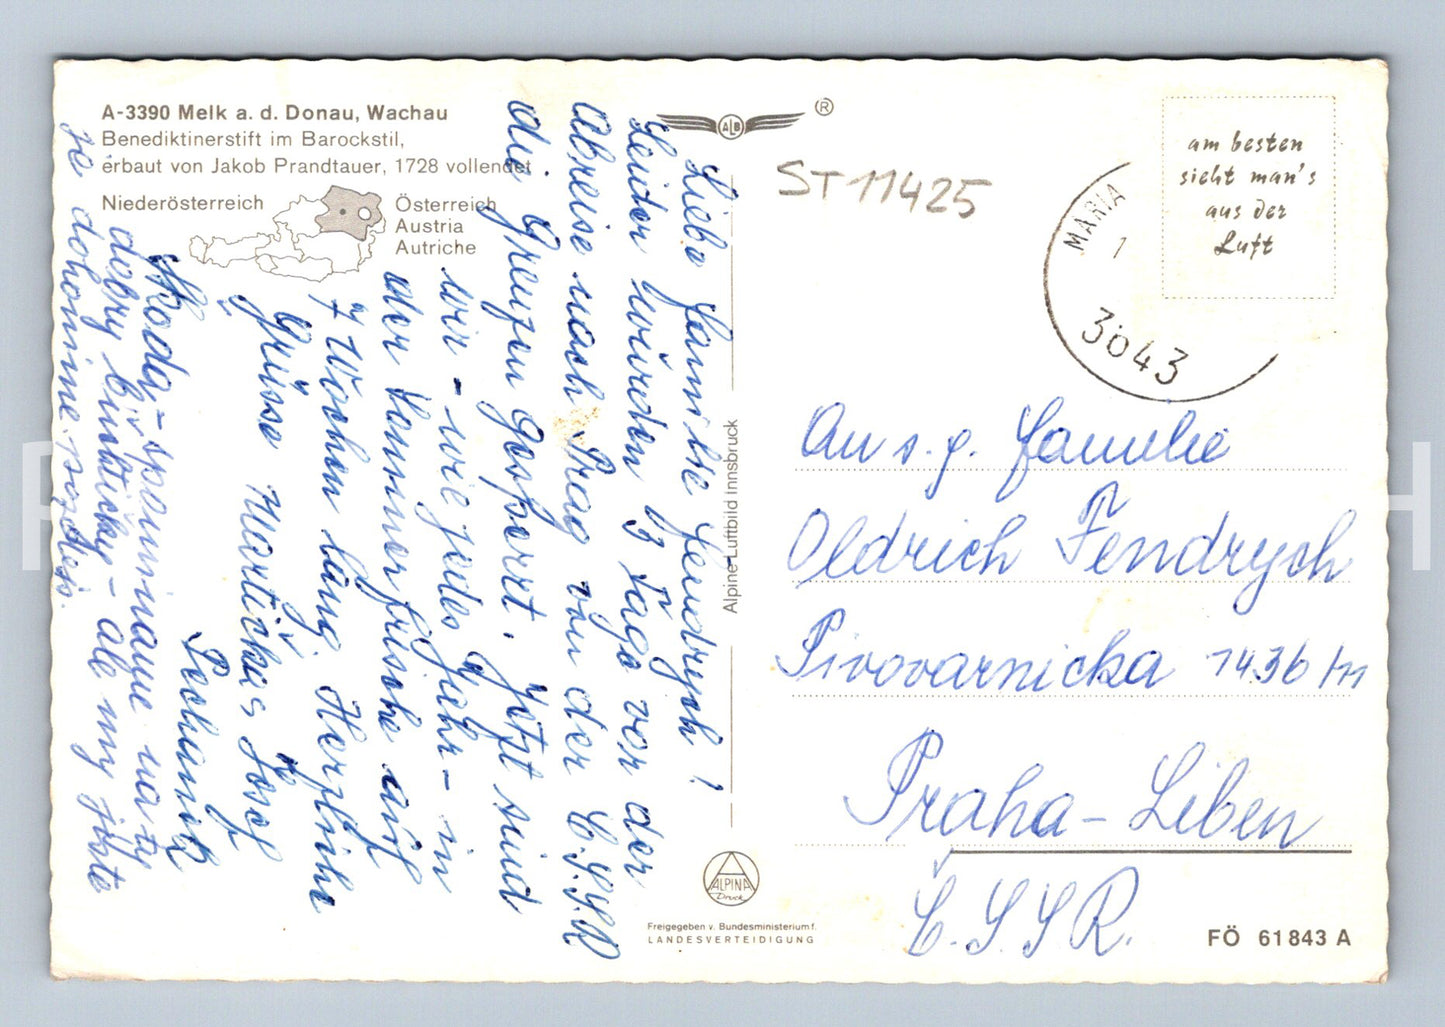 A-3390 Melk a. d. Donau, Wachau
Benediktinerstift im Barockstil,
erbaut von Jakob Prandtauer, 1728 vollendet
Niederösterreich
Österreich
Austria
Autriche
Liebe Familie Fendrych!
Leider wurden 3 Tage vor der
Abreise nach Prag von der Č.S.S.R
die Grenzen gesperrt. Jetzt sind
wir - wie jedes Jahr - in
der Sommerfrische auf
7 Wochen lang. Herzliche
Grüsse Martička, Josef
na ty
dobry - ale my jiste
je dohonime pozdeji.
ALB ®
Alpine Luftbild Innsbruck
ALPINA
Druck
Freigegeben v. Bundesministerium f.
LANDESVERTEIDIGUNG
ST 11425
MARIA
1
3043
am besten
sieht man's
aus der
Luft
An s.g. Familie
Oldrich Fendrych
Pivovarnicka 1436/m
Praha - Liben
Č.S.S.R.
FÖ 61843 A